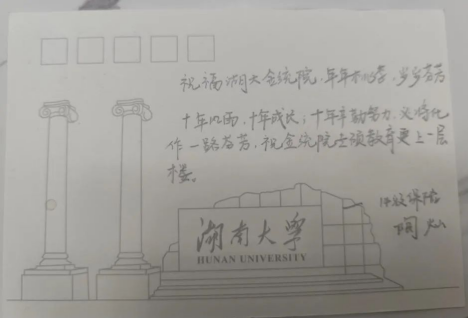 祝福湖大金统院,年年桃李,岁岁芬芳
十年风雨,十年成长;十年辛勤努力,必将化
作一路芬芳,祝金统院专硕教育更上一层
楼。
保险
湖南大学
HUNAN UNIVERSITY